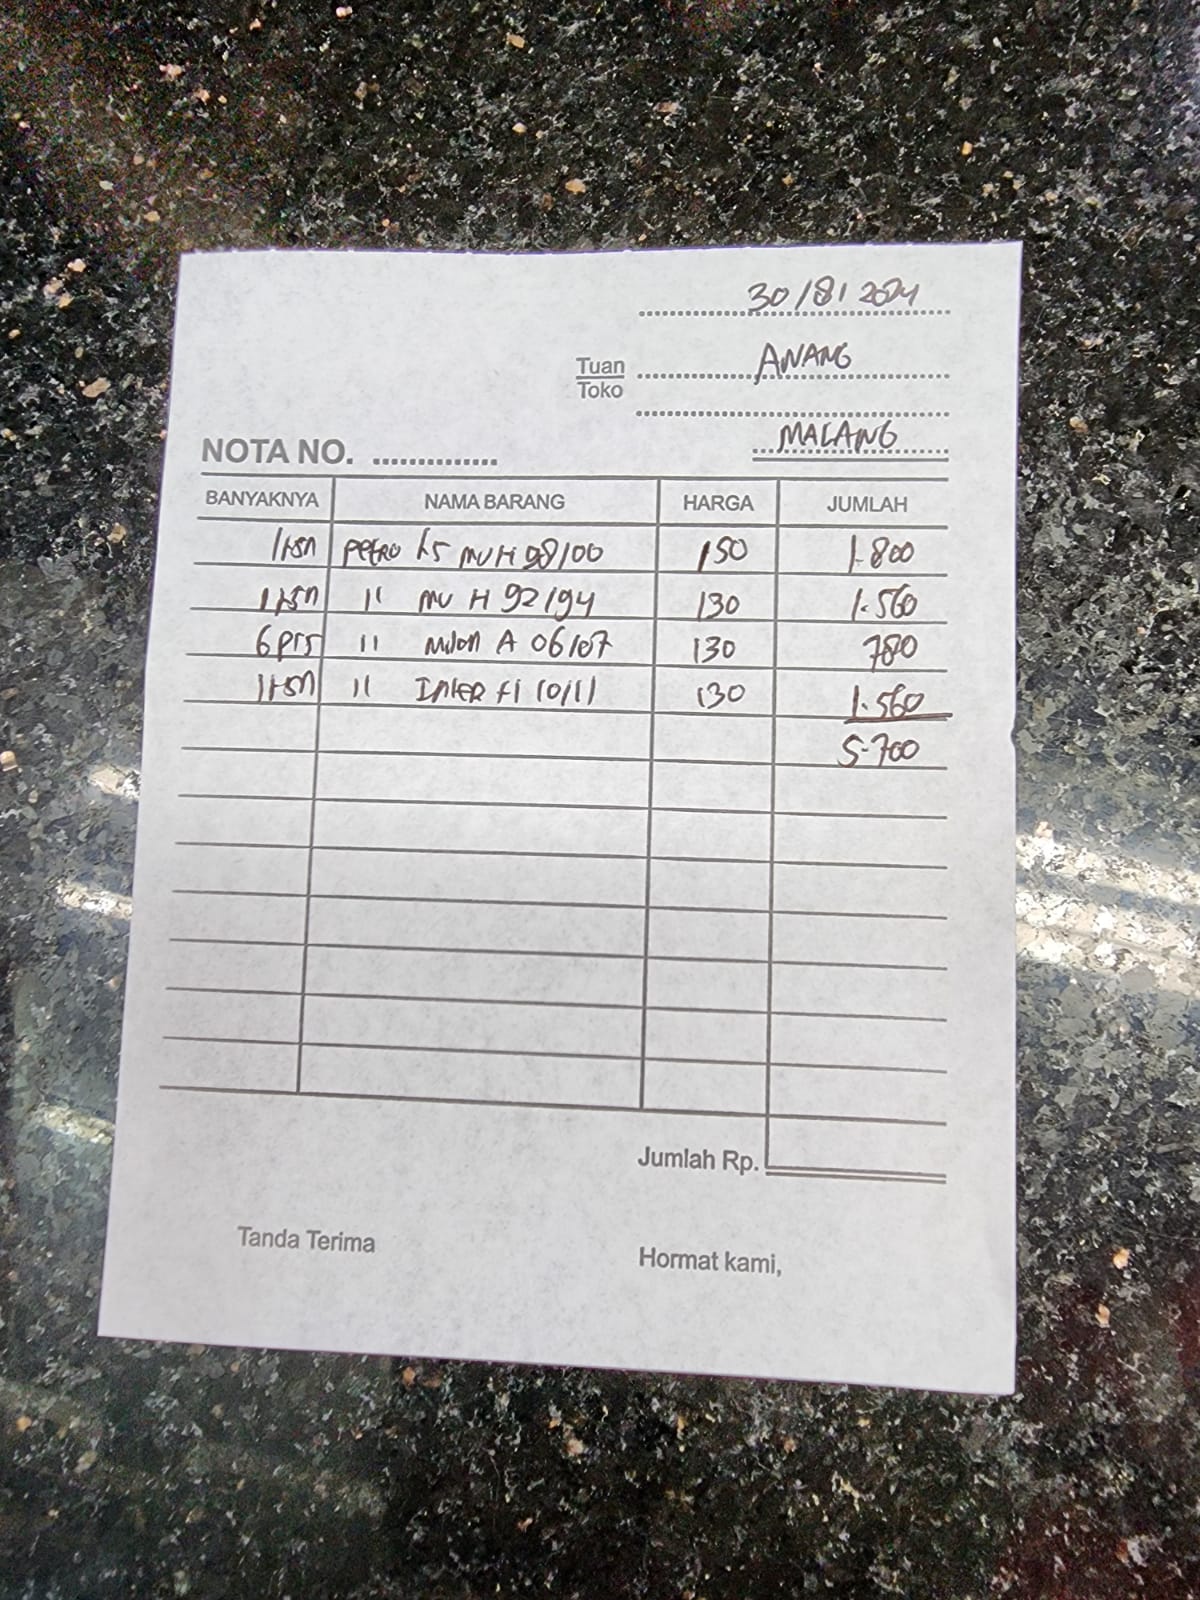 30/8/2024
Tuan ANANG
Toko
MALANG
NOTA NO. ..............
BANYAKNYA NAMA BARANG HARGA JUMLAH
1 Petro MU H 98/00 150 1.800
1 " MU H 92/94 130 1.560
6 prs " Milan A 06/07 130 780
1 " Inter 10/11 130 1.560
5.700
Jumlah Rp.
Tanda Terima
Hormat kami,